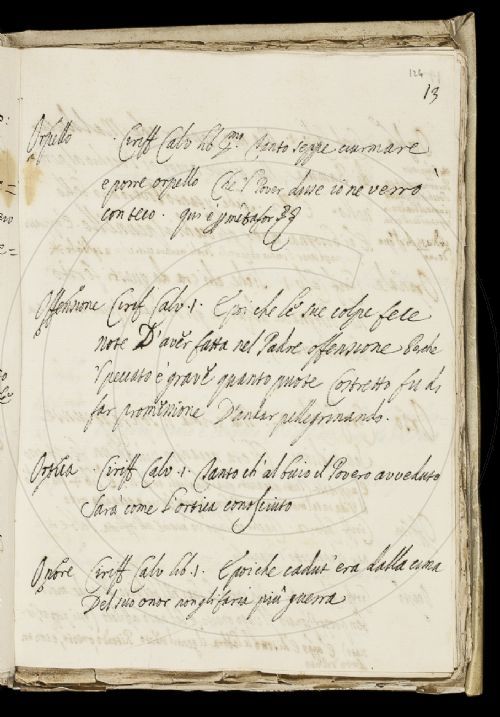 126
13
Orpello . Ciriff Calv lib p.mo Tanto seppe ciurmare
e porre orpello Che 'l Pover disse io ne verrò
con teco . qui è p metafor
Offensione Cirif Calv . 1 . E poi che le sue colpe fece
note D'aver fatta nel Padre offensione Perche
'l peccato è grave quanto puote Costretto fu di
far promessione D'andar pellegrinando .
Ortica . Ciriff Calv . 1 . Tanto ch' al buio il Povero avveduto
Sarà come l'ortica conosciuto
Onore Ciriff Calv lib . 1 . E poi che cadut' era dalla cima
Del suo onor non gli faria più guerra